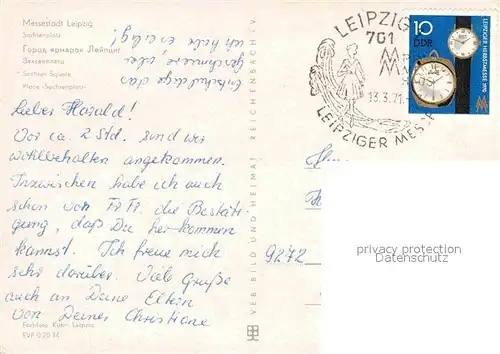 Messestadt Leipzig
Sachsenplatz
Город ярмарок Лейпциг
Saxony Square
Place «Sachsenplatz»
Entschuldige das
Geschmiere, aber
ich habe es eilig!
Lieber Harald!
Vor ca. 2 Std. sind wir
wohlbehalten angekommen.
Inzwischen habe ich auch
schon von Fr. Fr. die Bestäti-
gung, daß Du herkommen
kannst. Ich freue mich
sehr darüber. Viele Grüße
auch an Deine Eltern
von Deiner Christiane
Farbfoto:
EVP 0,20 M
VEB BILD UND HEIMAT REICHENBACH i. V.
LEIPZIG
701
MM
13.3.71
LEIPZIGER MES
10
DDR
LEIPZIGER HERBSTMESSE 1970
MM
9272
privacy protection
Datenschutz